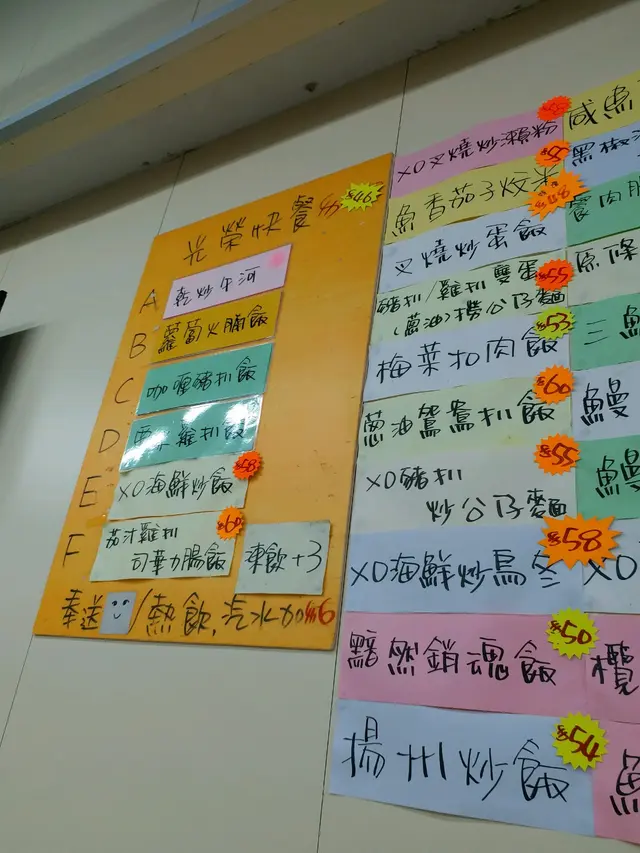 光榮快餐 $46
A 乾炒牛河
B 蘿蔔火腩飯
C 咖喱豬扒飯
D 西冧雞扒飯
E XO海鮮炒飯 $58
F 茄汁雞扒
司華力腸飯 $60
凍飲+3
奉送 /熱飲,汽水加$6
XO叉燒炒瀨粉
魚香茄子炆米 $55
叉燒炒蛋飯 $48
豬扒/雞扒雙蛋
(蔥油)撈公仔麵 $55
梅菜扣肉飯 $53
蔥油鴛鴦扒飯 $60
XO豬扒
炒公仔麵 $55
XO海鮮炒烏冬 $58
黯然銷魂飯 $50
揚州炒飯 $54
咸魚
黑椒
原條
三
鰻
鰻
XO
欖
魚